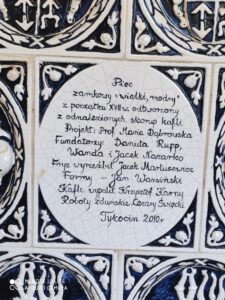 Piec
zamkowy "wielki, modry"
z początku XVII w. odtworzony
z odnalezionych skorup kafli.
Projekt: Prof. Maria Dąbrowska
Fundatorzy: Danuta Rupp,
Wanda i Jacek Nazarko
Jacek
Formy – Jan
Kafle Krzysztof
Roboty zduńskie Cezary Święcki
Tykocin 2010 r